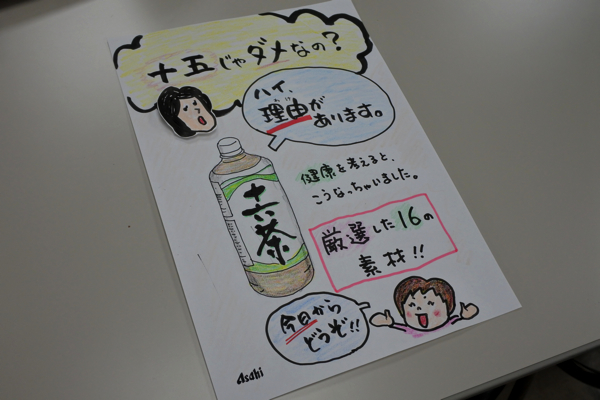 十五じゃダメなの?
ハイ、
理由が
あります。
健康を考えると、
こうなっちゃいました。
十六茶
厳選した16の
素材!!
今日から
どうぞ!!
Asahi